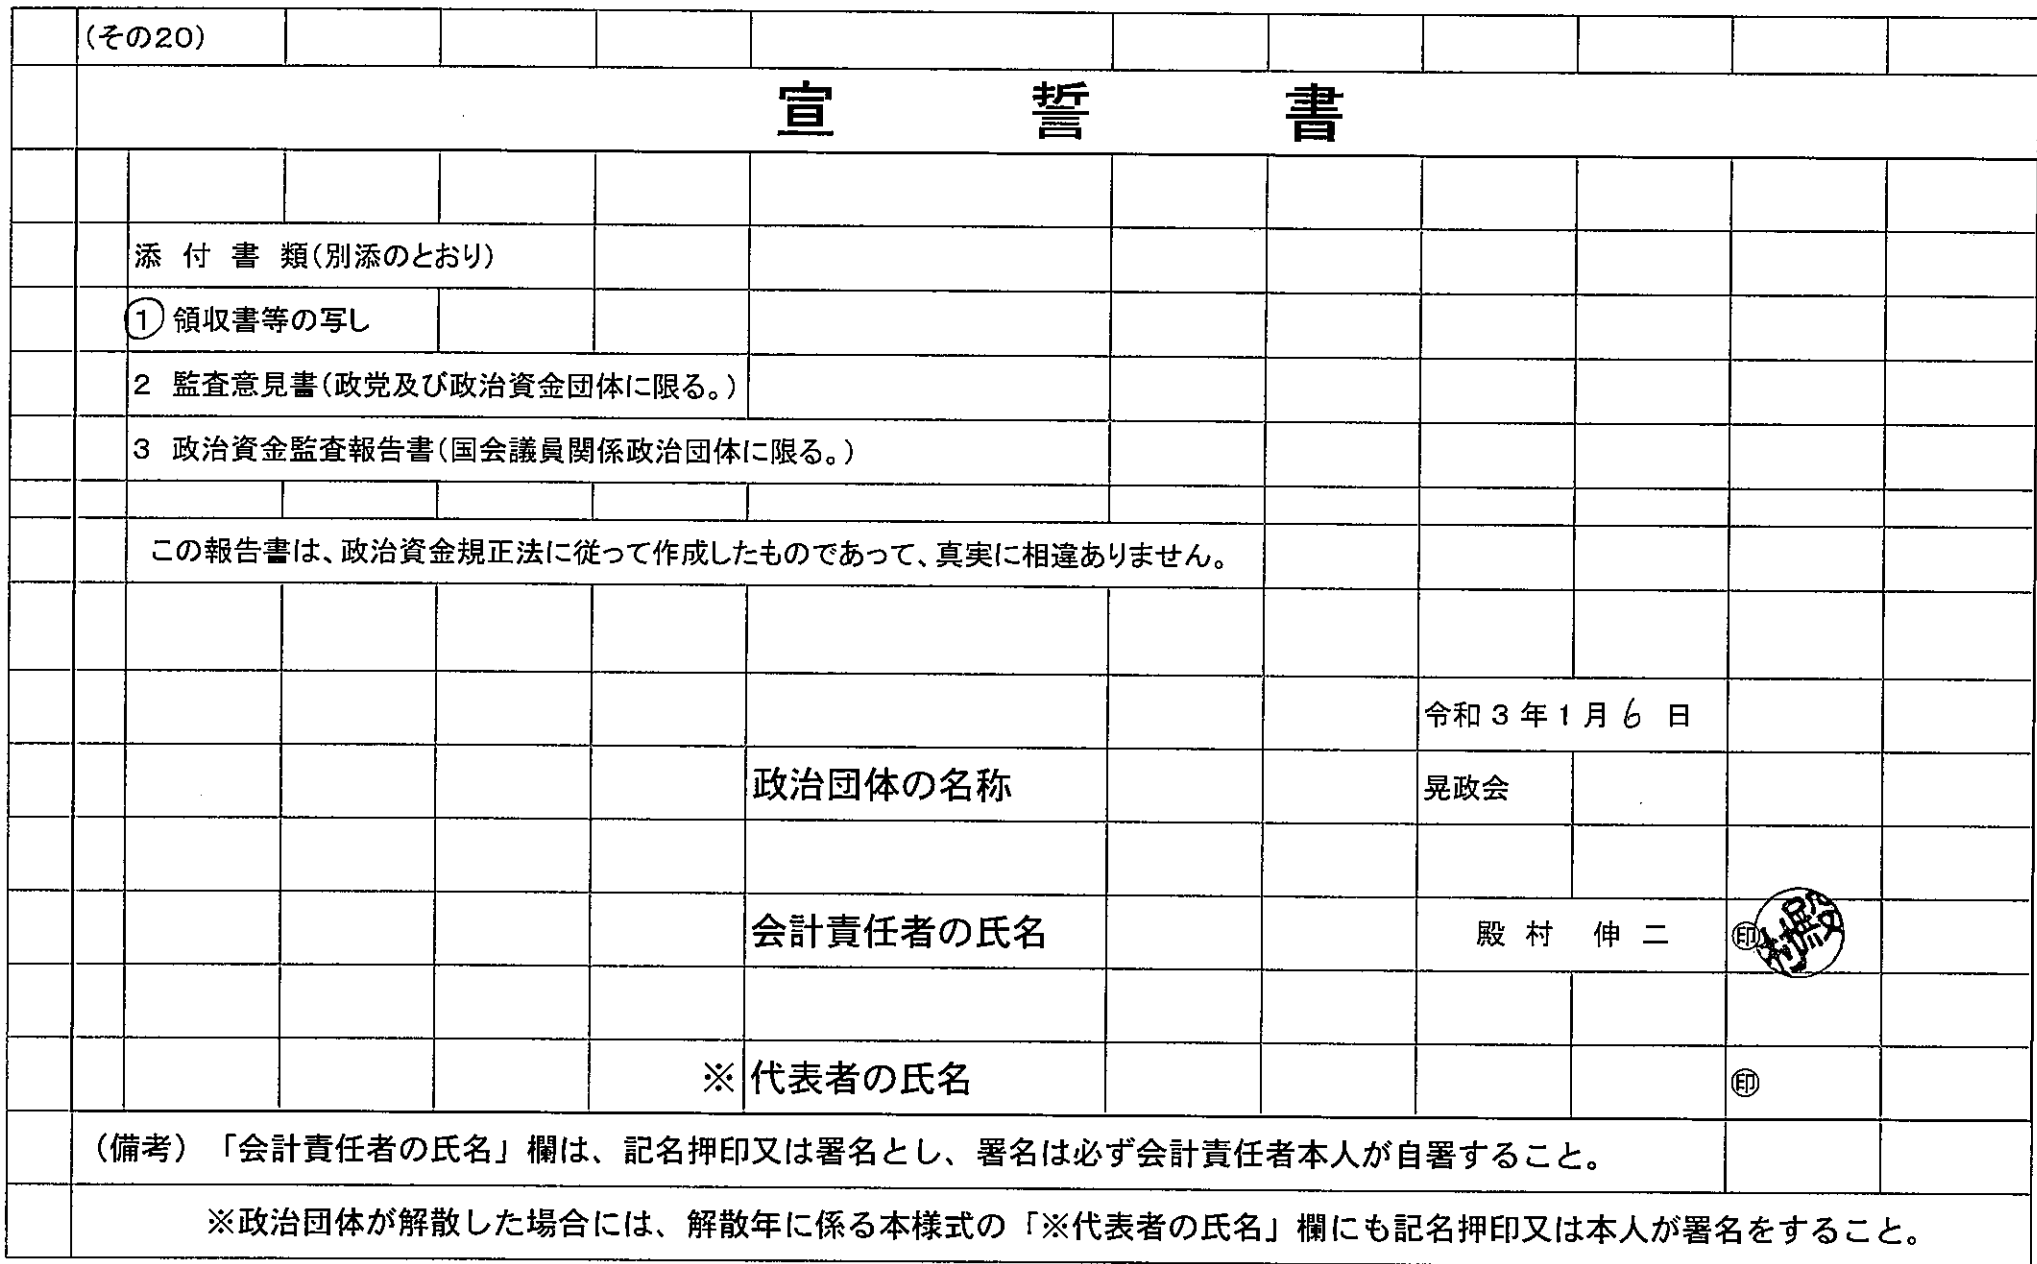 (その20)
宣誓書
添付書類(別添のとおり)
① 領収書等の写し
2 監査意見書(政党及び政治資金団体に限る。)
3 政治資金監査報告書(国会議員関係政治団体に限る。)
この報告書は、政治資金規正法に従って作成したものであって、真実に相違ありません。
令和3年1月6日
政治団体の名称 晃政会
会計責任者の氏名 殿村 伸二 ㊞ 殿村
※代表者の氏名 ㊞
(備考)「会計責任者の氏名」欄は、記名押印又は署名とし、署名は必ず会計責任者本人が自署すること。
※政治団体が解散した場合には、解散年に係る本様式の「※代表者の氏名」欄にも記名押印又は本人が署名をすること。